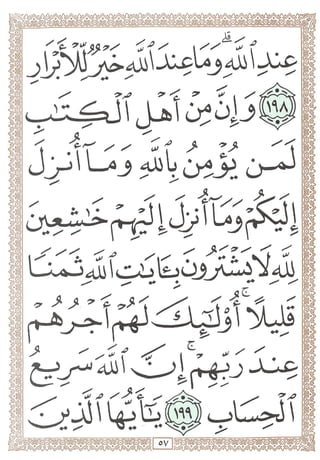 عِندِ اللَّهِ ۗ وَمَا عِندَ اللَّهِ خَيْرٌ لِّلْأَبْرَارِ
١٩٨ وَإِنَّ مِنْ أَهْلِ الْكِتَٰبِ
لَمَن يُؤْمِنُ بِاللَّهِ وَمَآ أُنزِلَ
إِلَيْكُمْ وَمَآ أُنزِلَ إِلَيْهِمْ خَٰشِعِينَ
لِلَّهِ لَا يَشْتَرُونَ بِـَٔايَٰتِ اللَّهِ ثَمَنًا
قَلِيلًا ۚ أُوْلَٰٓئِكَ لَهُمْ أَجْرُهُمْ
عِندَ رَبِّهِمْ ۗ إِنَّ اللَّهَ سَرِيعُ
الْحِسَابِ ١٩٩ يَٰٓأَيُّهَا الَّذِينَ
٥٧